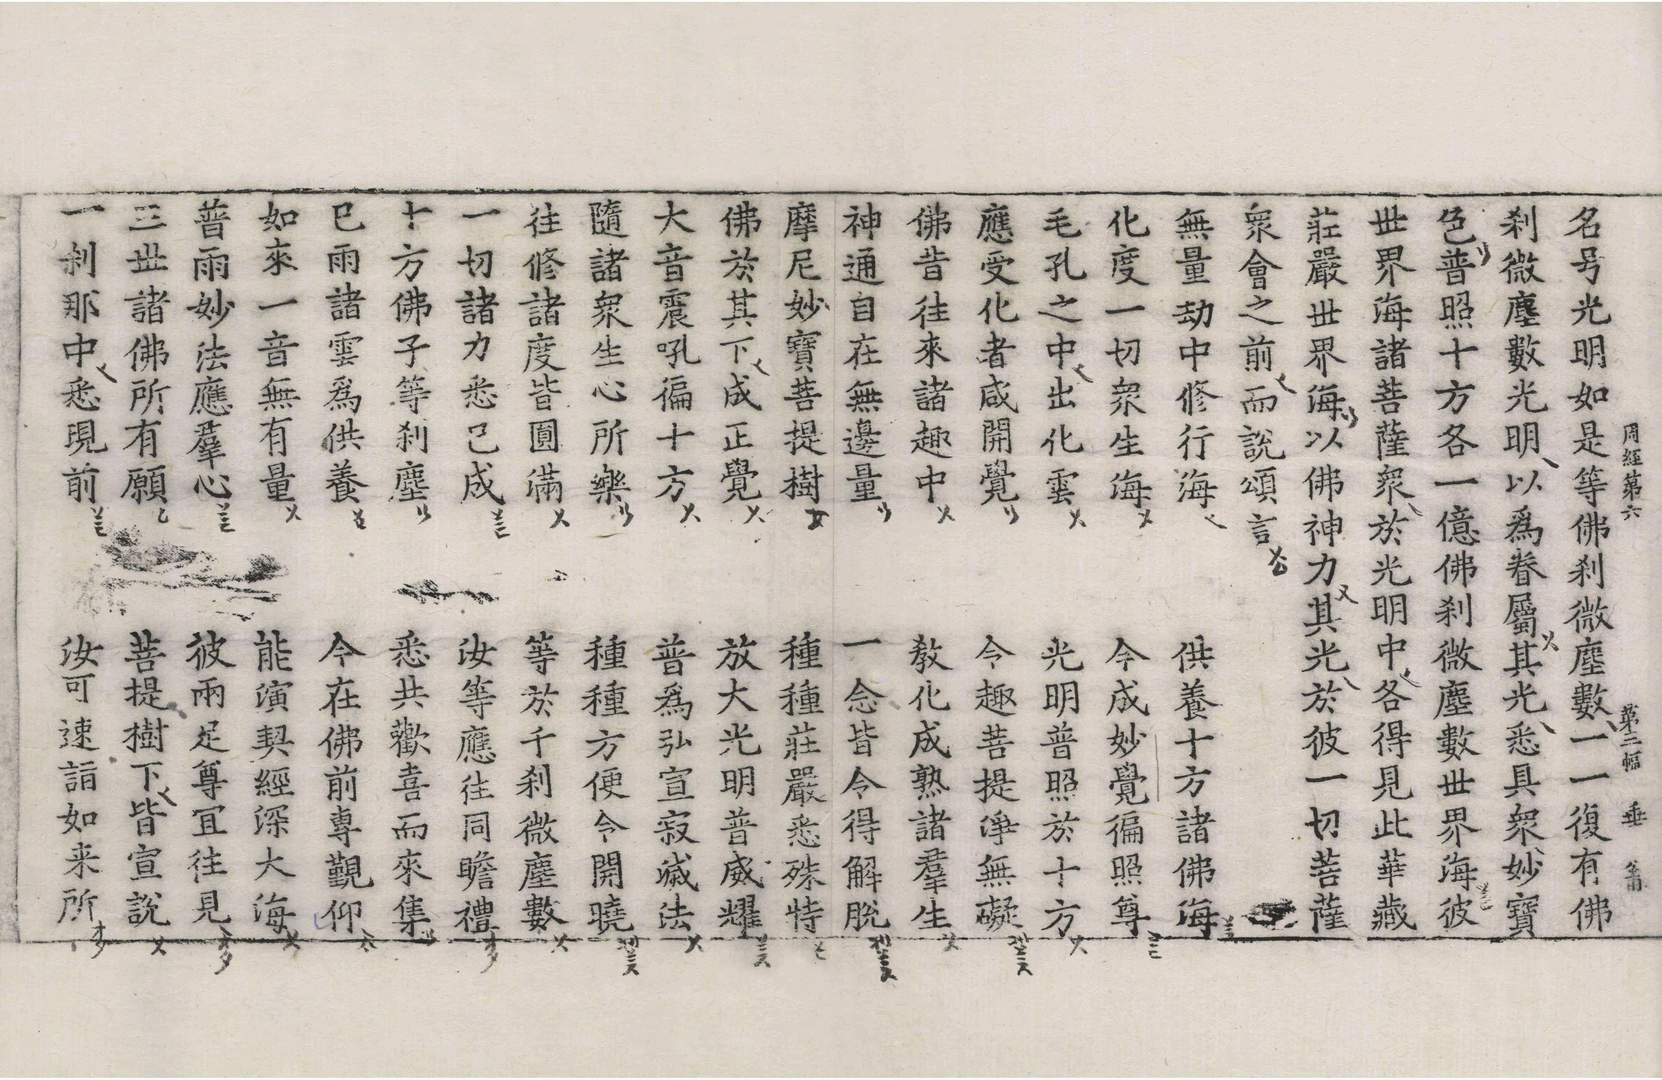 名号光明如是等佛刹微塵數一一復有佛
周經第六 第二幅 垂
刹微塵數光明以爲眷屬其光悉具衆妙寶
色普照十方各一億佛刹微塵數世界海彼
世界海諸菩薩衆於光明中各得見此華藏
莊嚴世界海以佛神力其光於彼一切菩薩
衆會之前而說頌言
無量劫中修行海 供養十方諸佛海
化度一切衆生海 今成妙覺徧照尊
毛孔之中出化雲 光明普照於十方
應受化者咸開覺 令趣菩提淨無礙
佛昔往來諸趣中 教化成熟諸羣生
神通自在無邊量 一念皆令得解脫
摩尼妙寶菩提樹 種種莊嚴悉殊特
佛於其下成正覺 放大光明普威耀
大音震吼徧十方 普爲弘宣寂滅法
隨諸衆生心所樂 種種方便令開曉
往修諸度皆圓滿 等於千刹微塵數
一切諸力悉已成 汝等應往同瞻禮
十方佛子等刹塵 悉共歡喜而來集
已雨諸雲爲供養 今在佛前專觀仰
如來一音無有量 能演契經深大海
普雨妙法應羣心 彼兩足尊宜往見
三世諸佛所有願 菩提樹下皆宣說
一刹那中悉現前 汝可速詣如来所